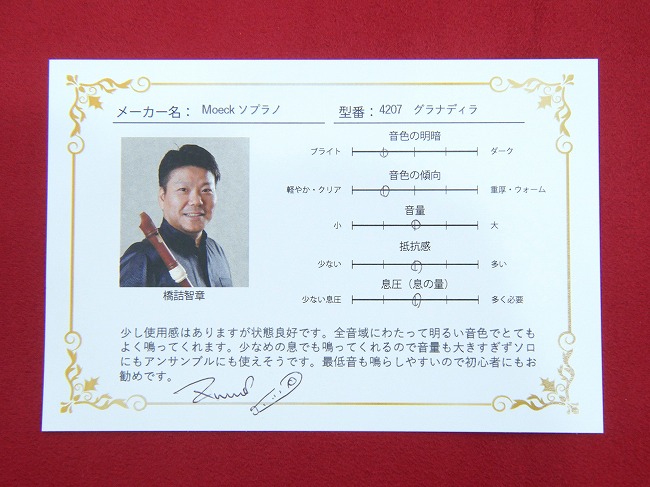 メーカー名： Moeckソプラノ 型番： 4207 グラナディラ
音色の明暗
ブライト ダーク
音色の傾向
軽やか・クリア 重厚・ウォーム
音量
小 大
抵抗感
少ない 多い
息圧（息の量）
少ない息圧 多く必要
橋詰智章
少し使用感はありますが状態良好です。全音域にわたって明るい音色でとても
よく鳴ってくれます。少なめの息でも鳴ってくれるので音量も大きすぎずソロ
にもアンサンブルにも使えそうです。最低音も鳴らしやすいので初心者にもお
勧めです。